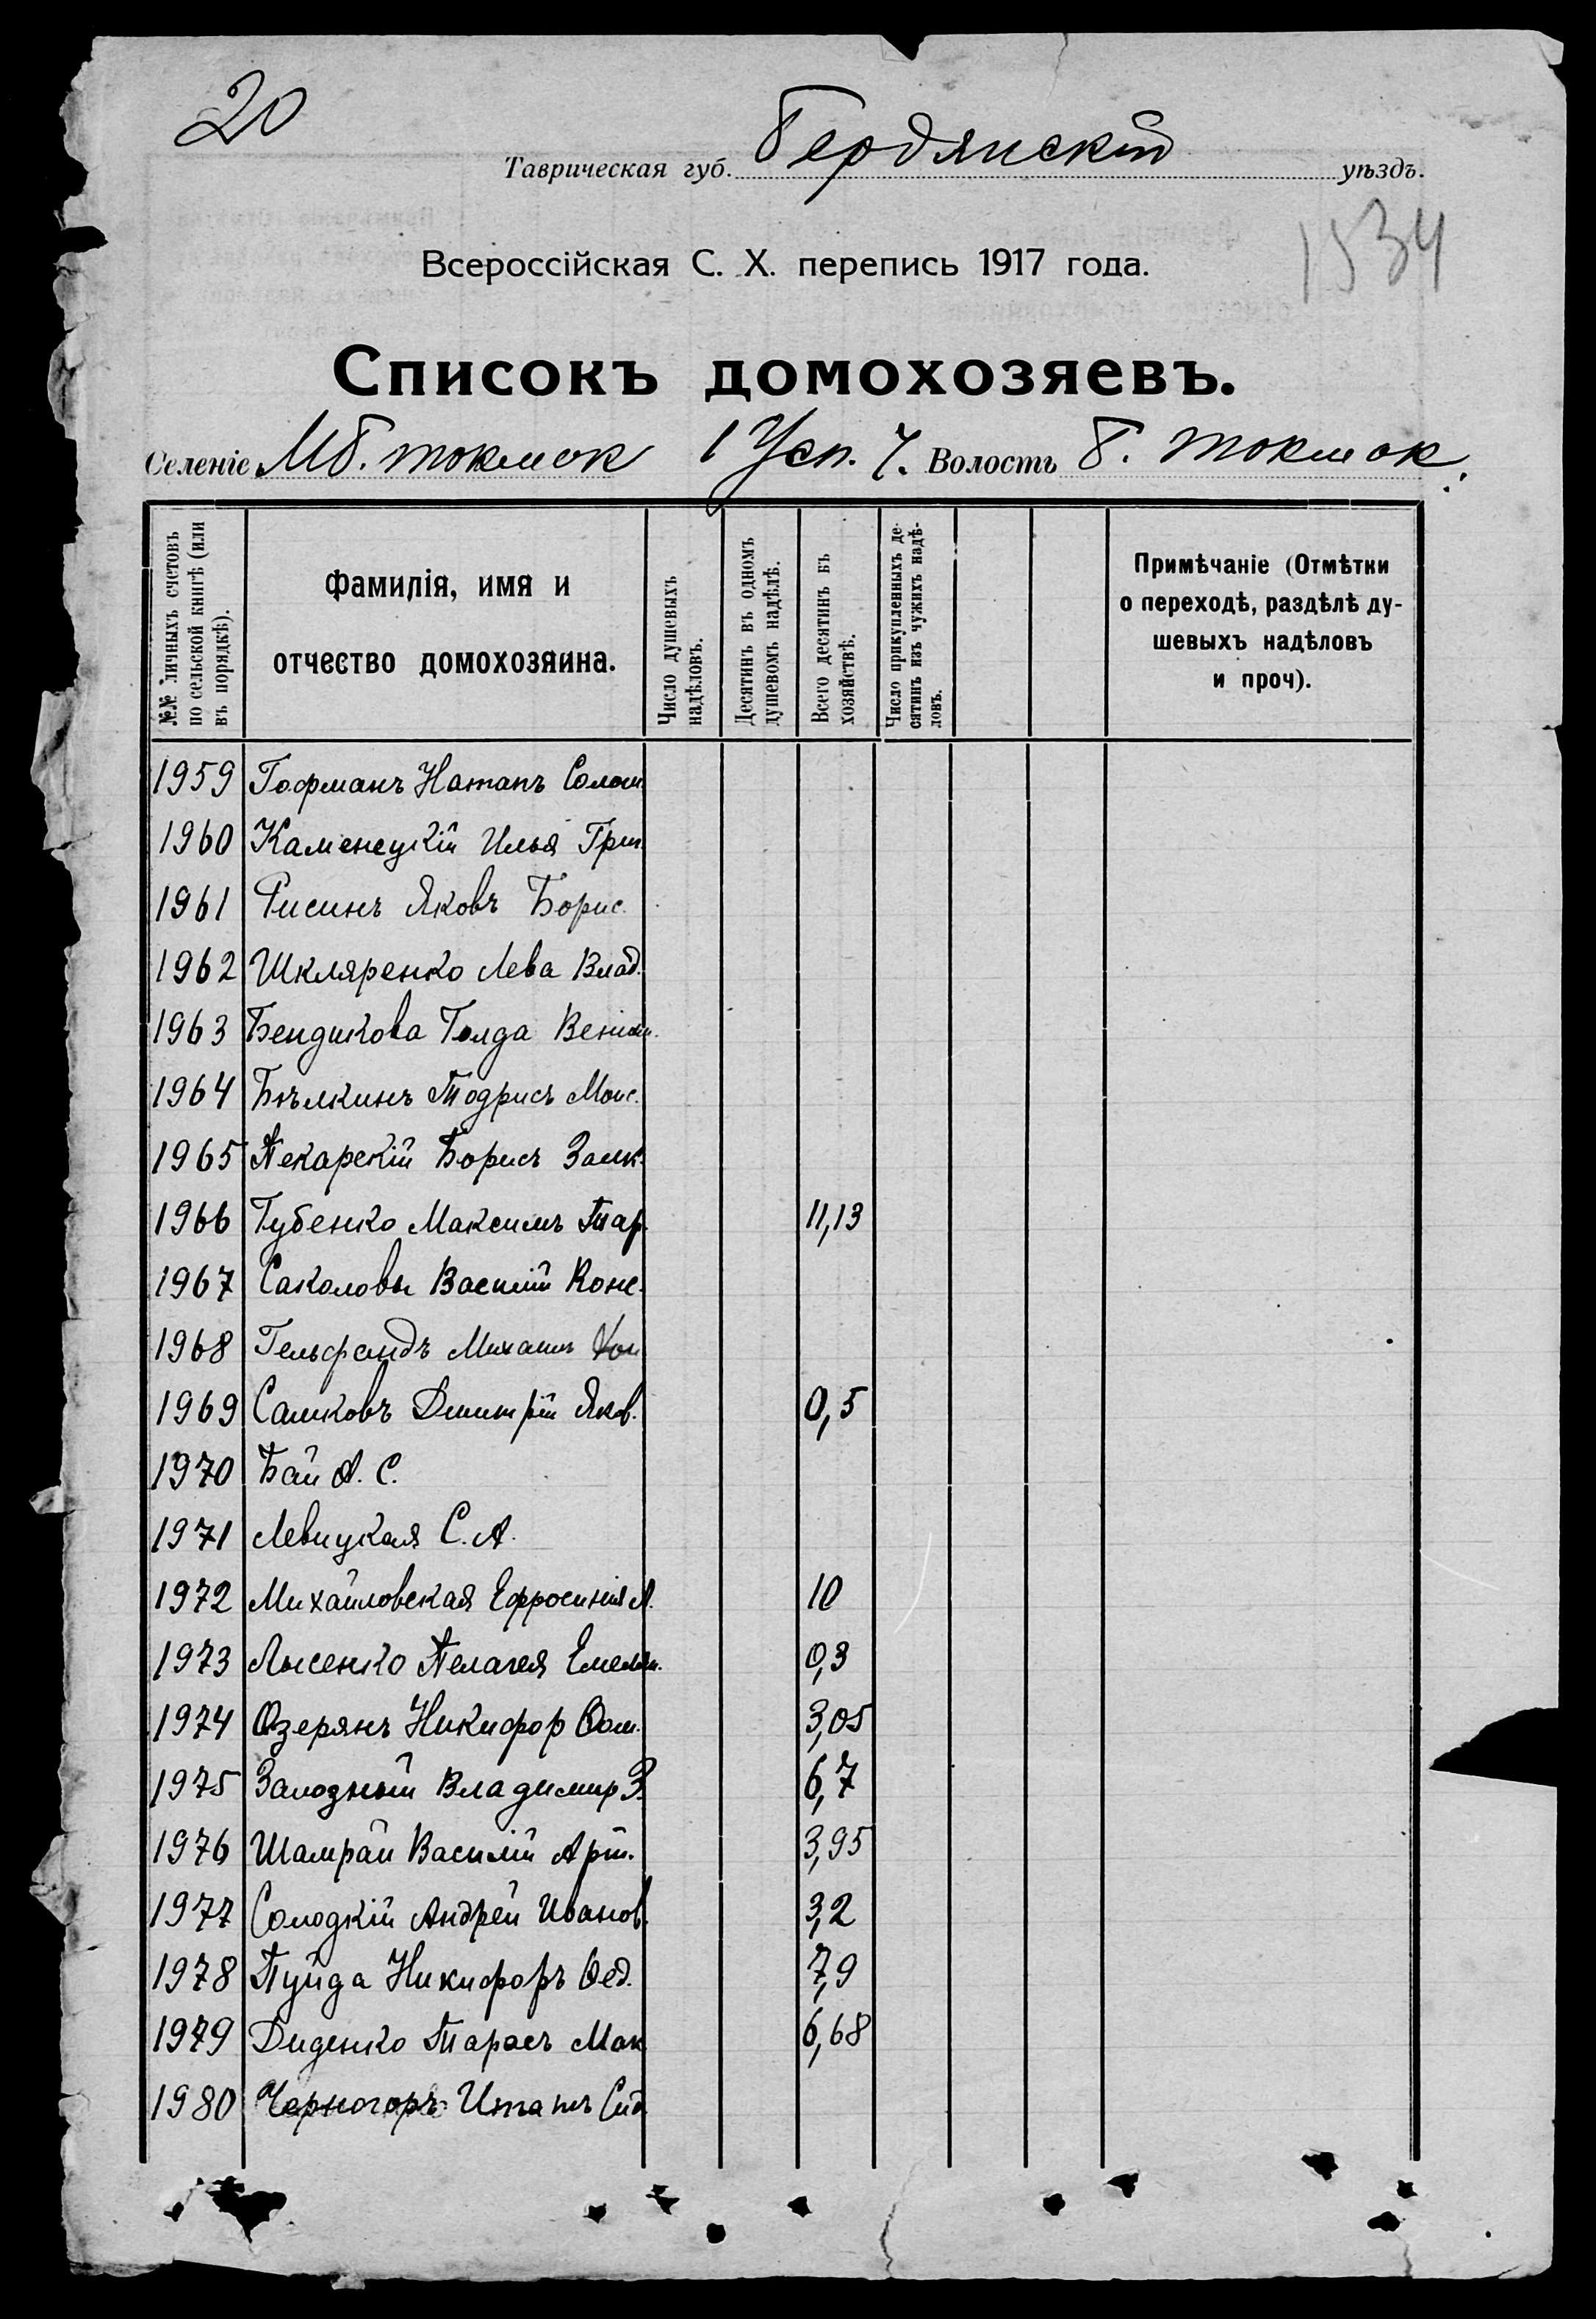 20
Таврическая губ. Бердянскій уѣздъ.
1534
Всероссійская С. Х. перепись 1917 года.
Списокъ домохозяевъ.
Селеніе Мб. токмок 1 Усп. 7. Волость Б. токмок.
№№ личныхъ счетовъ по сельской книгѣ (или въ порядкѣ).
Фамилія, имя и отчество домохозяина.
Число душевыхъ надѣловъ.
Десятинъ въ одномъ душевомъ надѣлѣ.
Всего десятинъ въ хозяйствѣ.
Число прикупленныхъ десятинъ изъ чужихъ надѣловъ.
Примѣчаніе (Отмѣтки о переходѣ, раздѣлѣ душевыхъ надѣловъ и проч).
1959 Гофманъ Натанъ Солом.
1960 Каменецкій Илья Григ.
1961 Рисинъ Яковъ Борис.
1962 Шкляренко Лева Влад.
1963 Бендикова Голда Веніам.
1964 Бѣлкинъ Тодрисъ Моис.
1965 Пекарскій Борисъ Залк.
1966 Губенко Максимъ Тар. 11,13
1967 Саколовы Василій Конс.
1968 Гельфандъ Михаилъ
1969 Салиховъ Дмитрій Яков. 0,5
1970 Бай А. С.
1971 Левицкая С. А.
1972 Михайловская Ефросинія А. 10
1973 Лысенко Пелагея Емельян. 0,3
1974 Озерянъ Никифор Ѳом. 3,05
1975 Залозный Владимир З. 6,7
1976 Шамрай Василій Арт. 3,95
1977 Солодкій Андрей Иванов. 3,2
1978 Пуйда Никифоръ Ѳед. 7,9
1979 Диденко Тарасъ Мак. 6,68
1980 Черногоръ Ипатъ Сид.